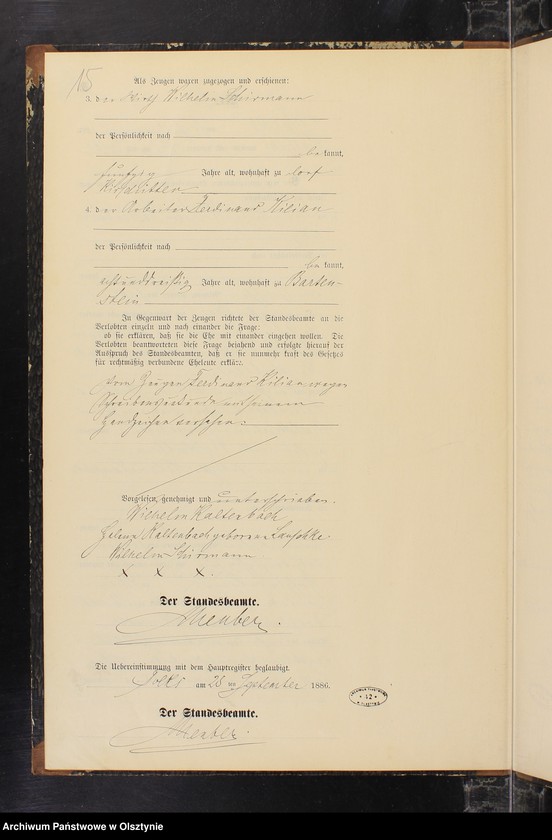 15
Als Zeugen waren zugezogen und erschienen:
3. der Wirth Wilhelm Stürmann
der Persönlichkeit nach
be kannt,
fünfzig Jahre alt, wohnhaft zu Dorf
4. der Arbeiter Ferdinand Kilian
der Persönlichkeit nach
be kannt,
achtunddreißig Jahre alt, wohnhaft zu Barten-
stein
In Gegenwart der Zeugen richtete der Standesbeamte an die
Verlobten einzeln und nach einander die Frage:
ob sie erklären, daß sie die Ehe mit einander eingehen wollen. Die
Verlobten beantworteten diese Frage bejahend und erfolgte hierauf der
Ausspruch des Standesbeamten, daß er sie nunmehr kraft des Gesetzes
für rechtmäßig verbundene Eheleute erkläre.
vom Zeugen Ferdinand Kilian wegen
Schreibensunkunde mit seinem
Handzeichen versehen:
Vorgelesen, genehmigt und unterschrieben.
Wilhelm Kaltenbach
Helene Kaltenbach geborene
Wilhelm Stürmann
X X X.
Der Standesbeamte.
Die Uebereinstimmung mit dem Hauptregister beglaubigt.
am 28 ten September 1886.
Der Standesbeamte.
42
Archiwum Państwowe w Olsztynie